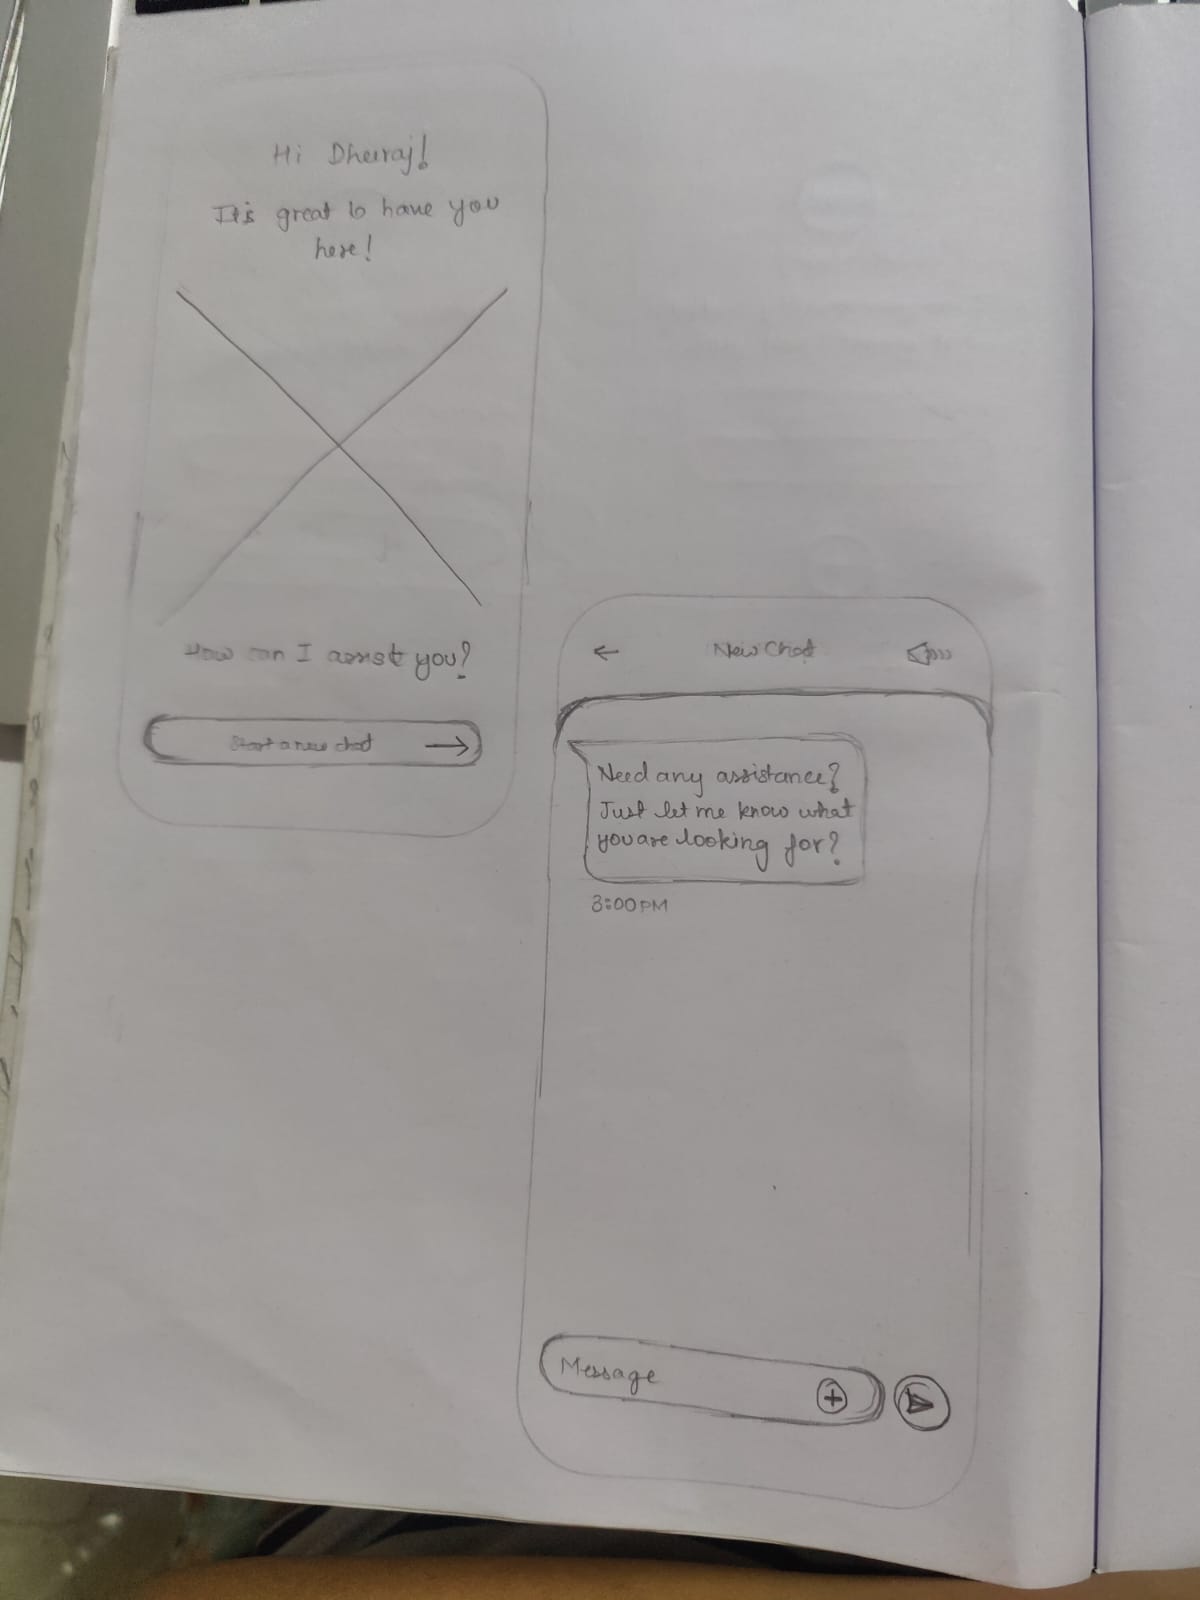 Hi Dheeraj!
It's great to have you
here!
How can I assist you?
Start a new chat
New Chat
Need any assistance?
Just let me know what
you are looking for?
3:00 PM
Message